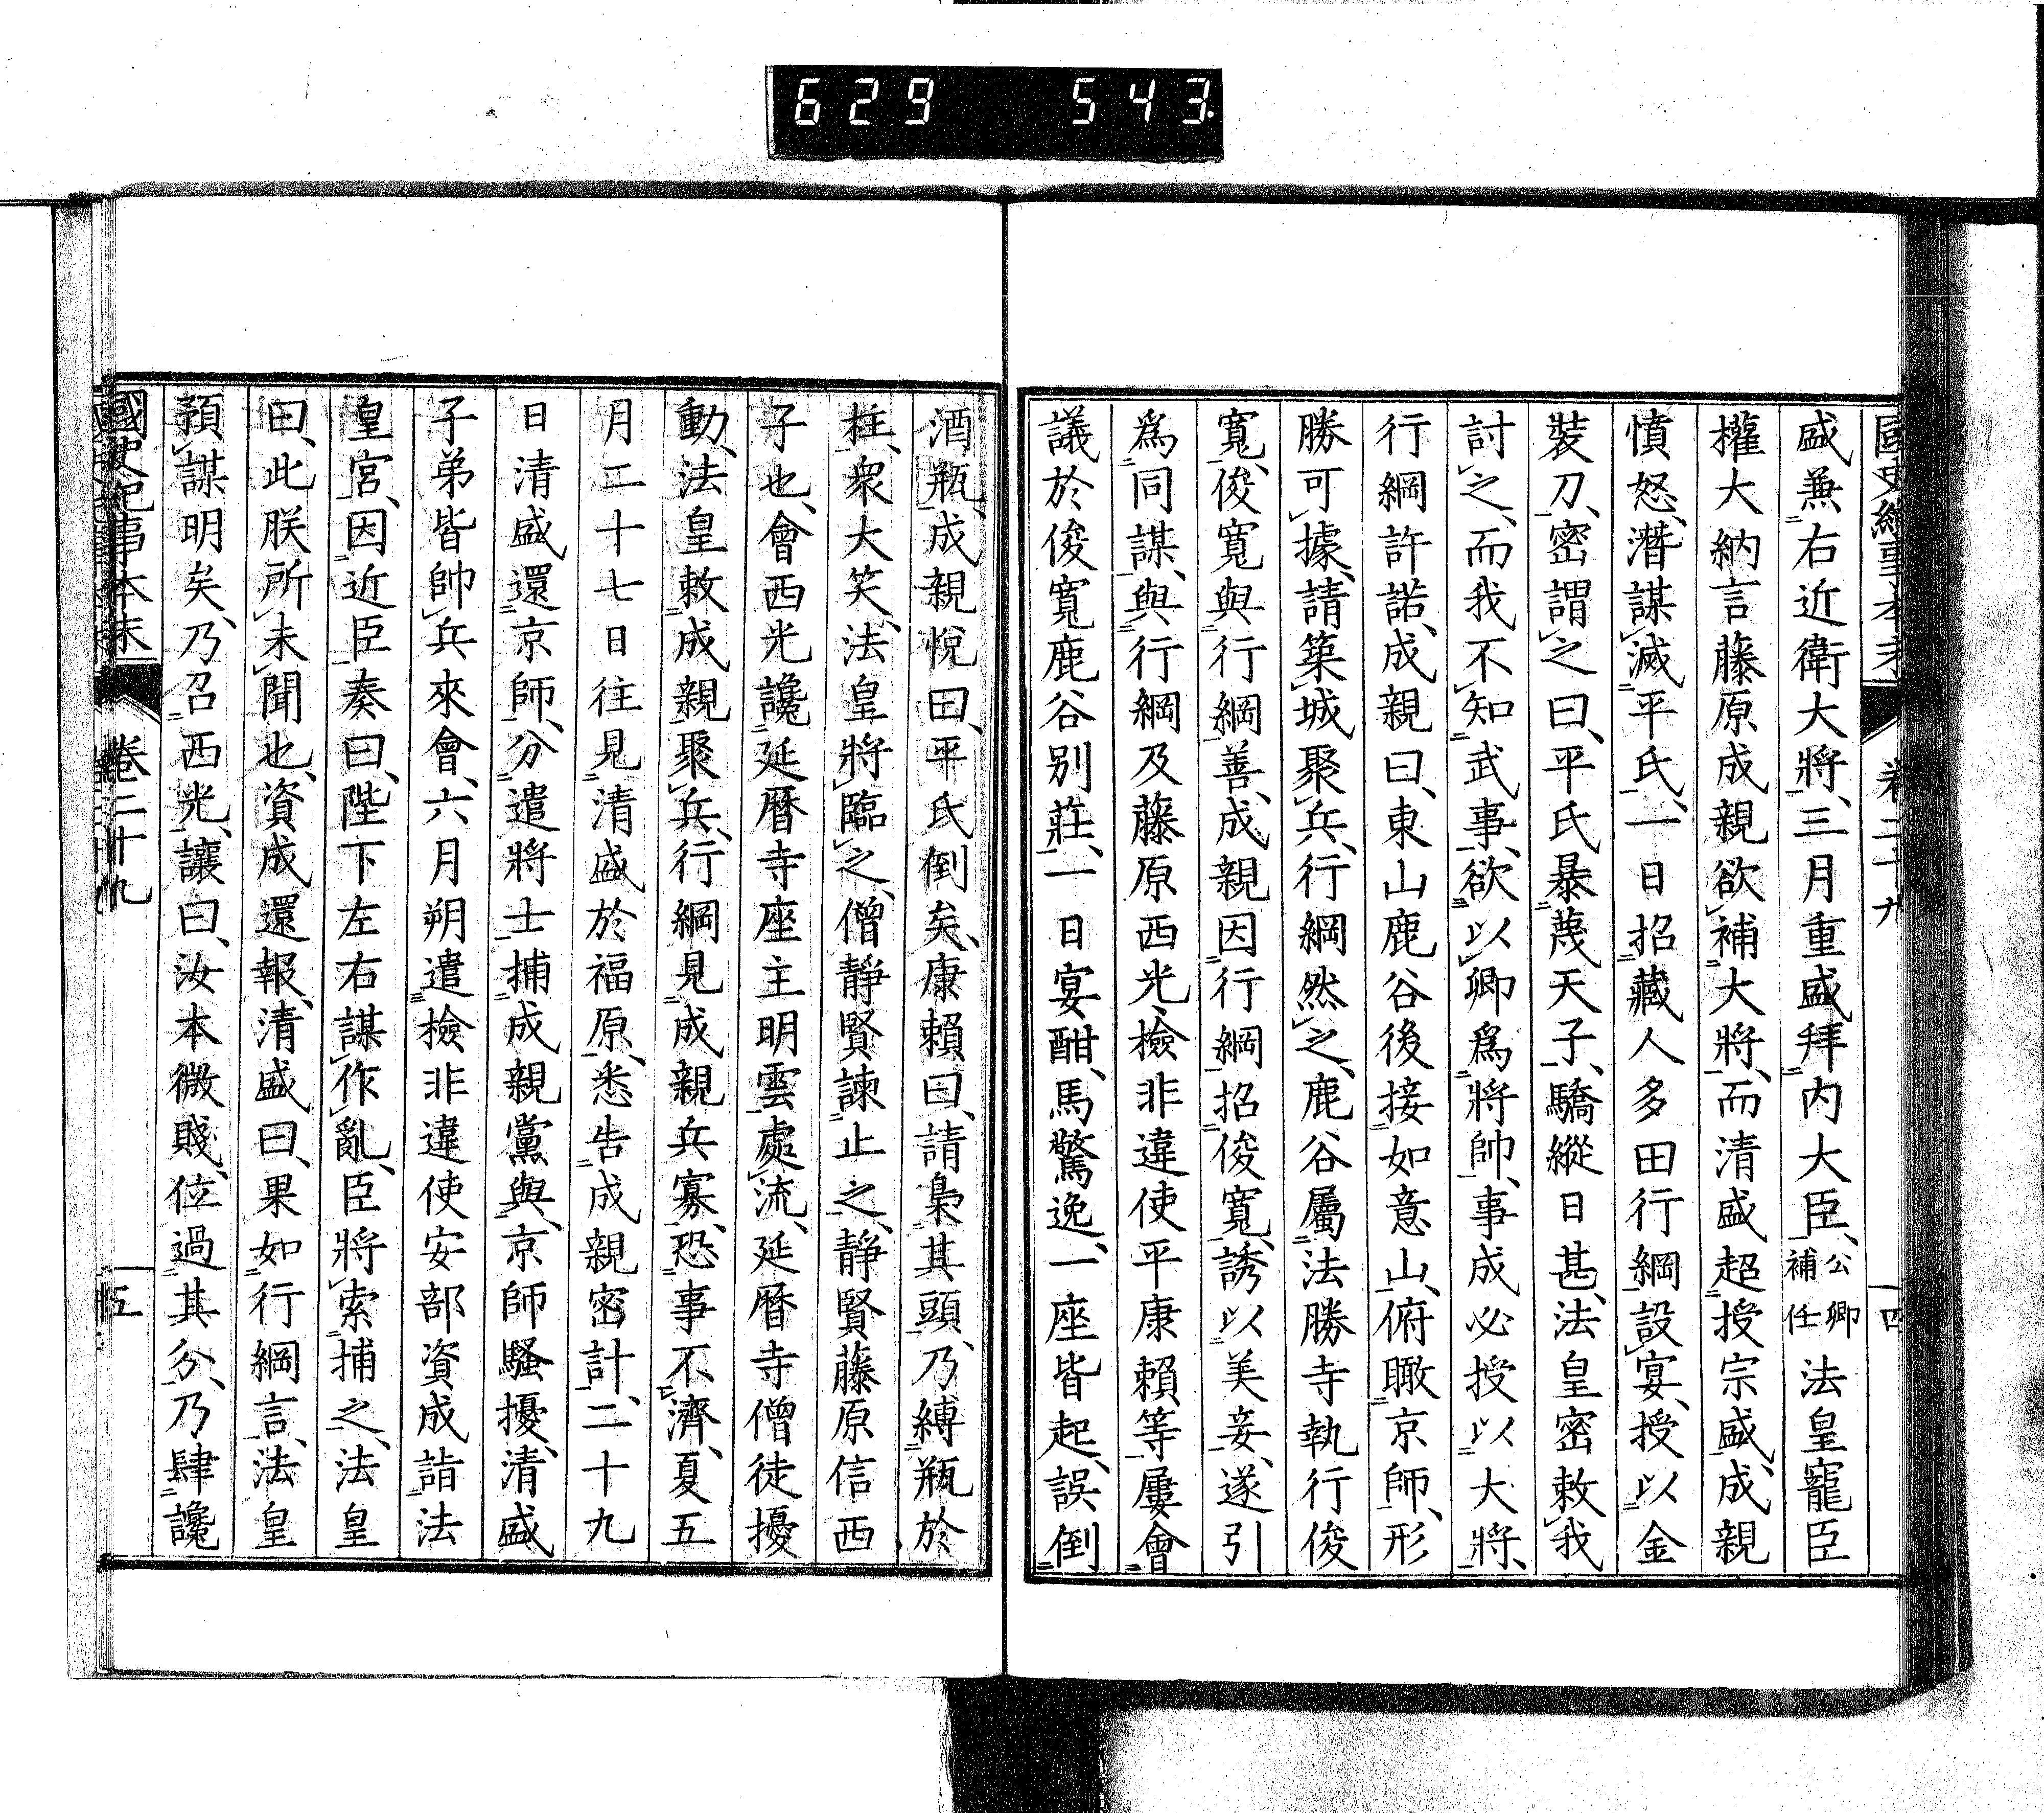 629 543
國史紀事本末 卷二十九 一四
盛兼右近衛大將、三月重盛拜內大臣、公卿補任法皇寵臣
權大納言藤原成親欲補大將、而清盛超授宗盛、成親
憤怒、潛謀滅平氏、一日招藏人多田行綱設宴、授以金
裝刀、密謂之曰、平氏暴蔑天子、驕縱日甚、法皇密敕我
討之、而我不知武事、欲以卿爲將帥、事成必授以大將、
行綱許諾、成親曰、東山鹿谷後接如意山、俯瞰京師、形
勝可據、請築城聚兵、行綱然之、鹿谷屬法勝寺執行俊
寬、俊寬與行綱善、成親因行綱招俊寬、誘以美妾、遂引
爲同謀、與行綱及藤原西光、檢非違使平康賴等屢會
議於俊寬鹿谷別莊、一日宴酣、馬驚逸、一座皆起、誤倒
酒瓶、成親悅曰、平氏倒矣、康賴曰、請梟其頭、乃縛瓶於
柱、衆大笑、法皇將臨之、僧靜賢諫止之、靜賢藤原信西
子也、會西光讒延曆寺座主明雲處流、延曆寺僧徒擾
動、法皇敕成親聚兵、行綱見成親兵寡、恐事不濟、夏五
月二十七日往見清盛於福原、悉告成親密計、二十九
日清盛還京師、分遣將士捕成親黨與、京師騷擾、清盛
子弟皆帥兵來會、六月朔遣檢非違使安部資成詣法
皇宮、因近臣奏曰、陛下左右謀作亂、臣將索捕之、法皇
曰、此朕所未聞也、資成還報、清盛曰、果如行綱言、法皇
預謀明矣、乃召西光、讓曰、汝本微賤、位過其分、乃肆讒
國史紀事本末 卷二十九 一五